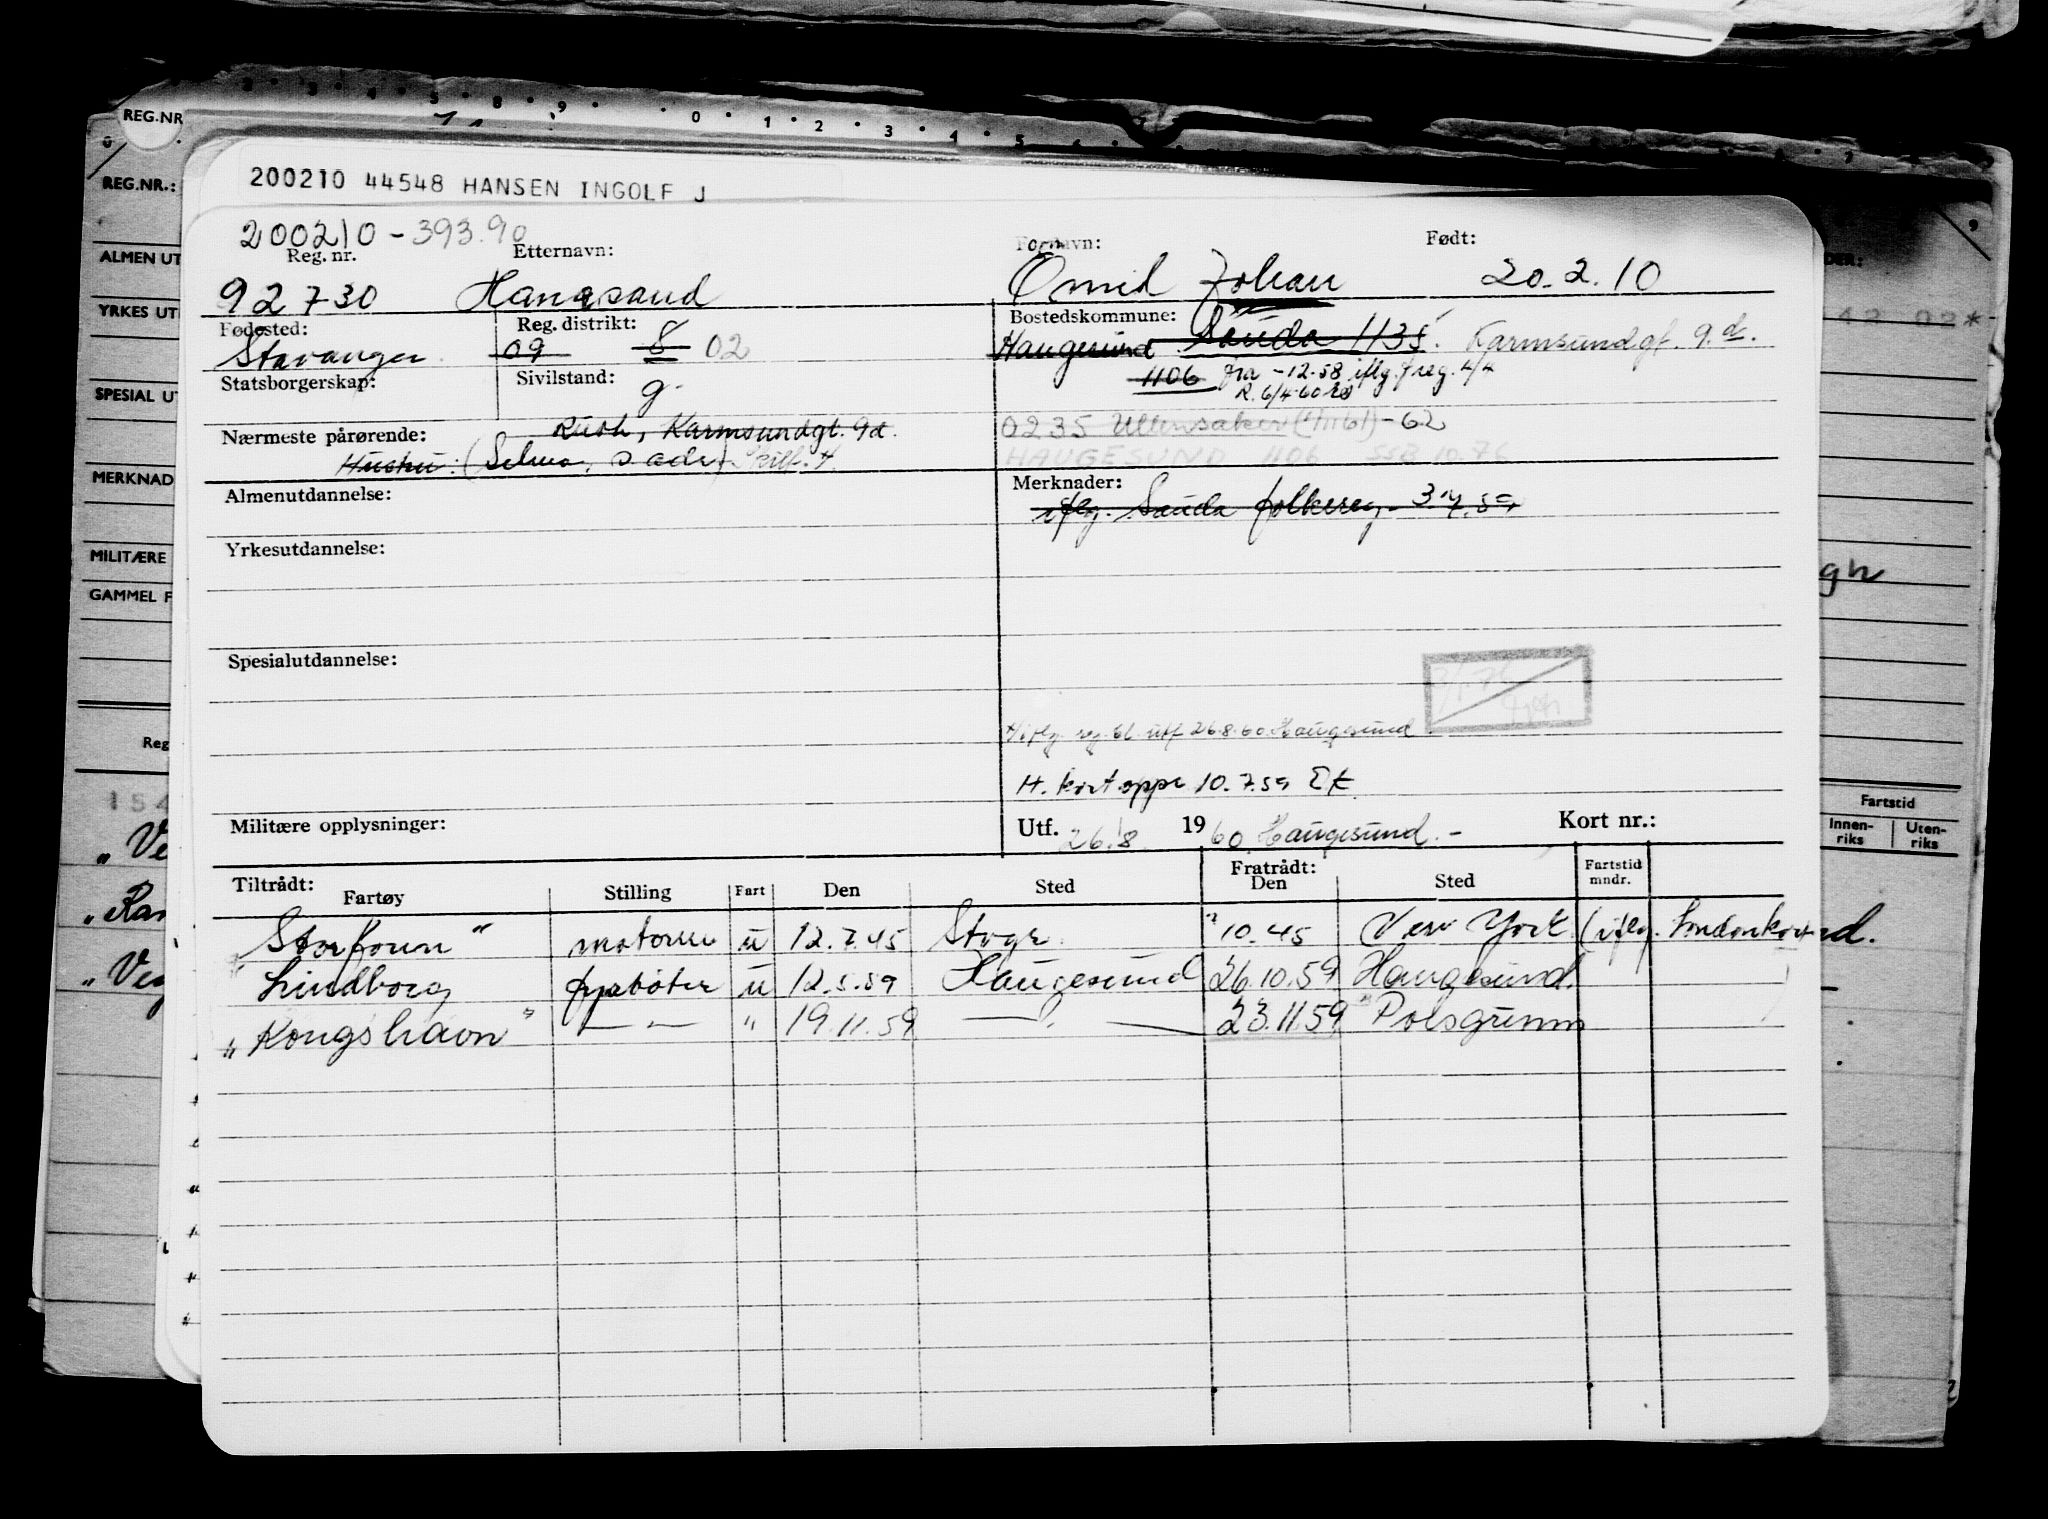 REG.NR
REG.NR.:
ALMEN UT
YRKES UT
SPESIAL UT
MERKNAD
MILITÆRE
GAMMEL F
Reg
154
„Ve
„Ran
„Veg
200210 44548 HANSEN INGOLF J
200210-393.90
Reg. nr. Etternavn: Fornavn: Født:
92730 Johan 20.2.10
Fødested: Reg. distrikt: Bostedskommune:
Stavanger 09 8 02 Haugesund Sauda 1135. Karmsundgt. 9d.
Statsborgerskap: Sivilstand: g. 1106 fra -12.58 iflg. freg. 4/4
R. 6/4-60
Ruth, Karmsundgt. 9d. 0235 Ullensaker -62
Nærmeste pårørende:
Hustru: (Selma, s. adr) HAUGESUND 1106 SSB 10.76
Almenutdannelse: Merknader:
iflg. Sauda folkereg. 3.4.59
Yrkesutdannelse:
Spesialutdannelse:
iflg. reg.bl. utf 26.8.60 Haugesund
H. kort oppr 10.7.59
Militære opplysninger: Utf. 26/8 1960 Haugesund.- Kort nr.:
Tiltrådt: Fratrådt: Fartstid
Fartøy Stilling Fart Den Sted Den Sted mndr.
Storfonn" u 12.7.45 10.45 New York (iflg. Londonkort
"Lindborg fyrbøter u 12.5.59 Haugesund 26.10.59 Haugesund.
"Kongshavn" — " — " 19.11.59 — " — 23.11.59 Porsgrunn
Fartstid
Innen-
riks
Uten-
riks